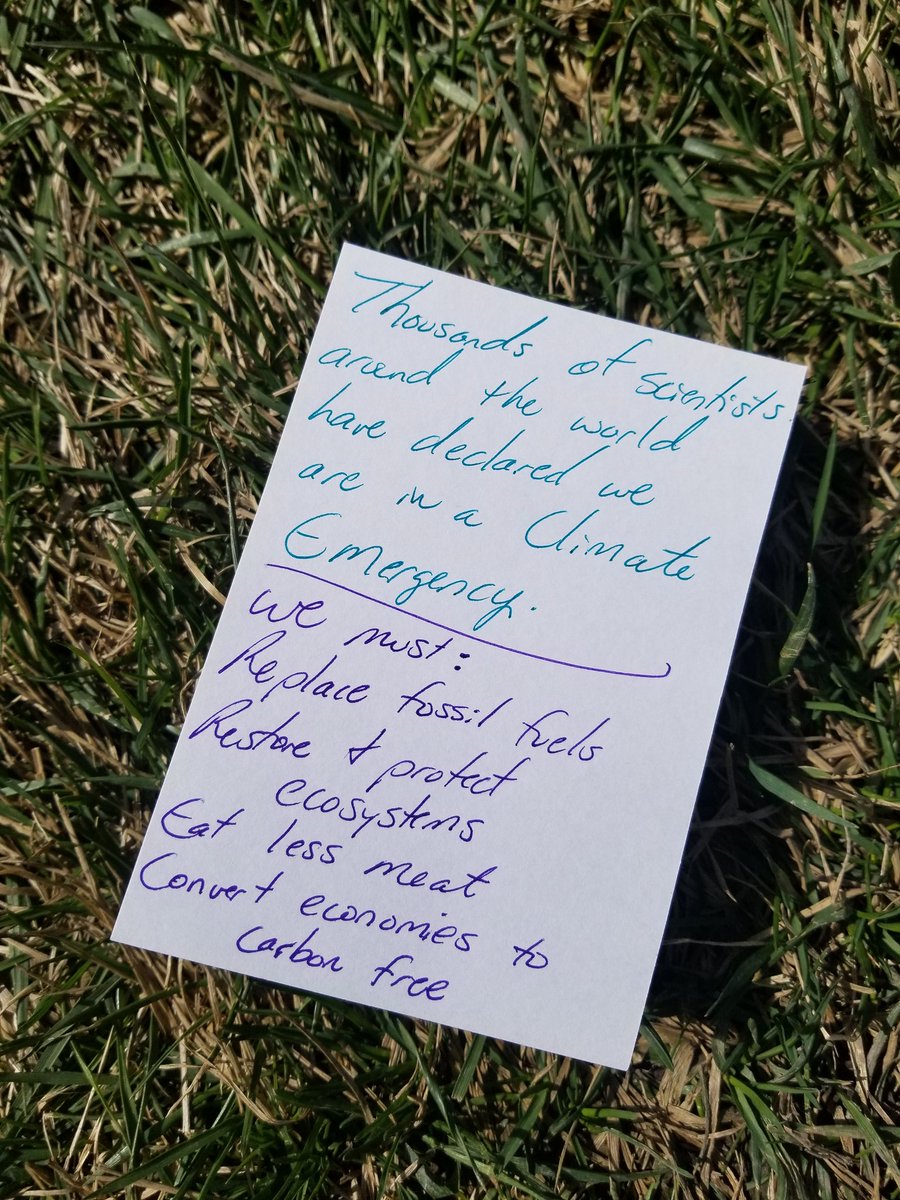 Thousands of scientists
around the world
have declared we
are in a Climate
Emergency.
we must:
Replace fossil fuels
Restore + protect
ecosystems
Eat less meat
Convert economies to
carbon free